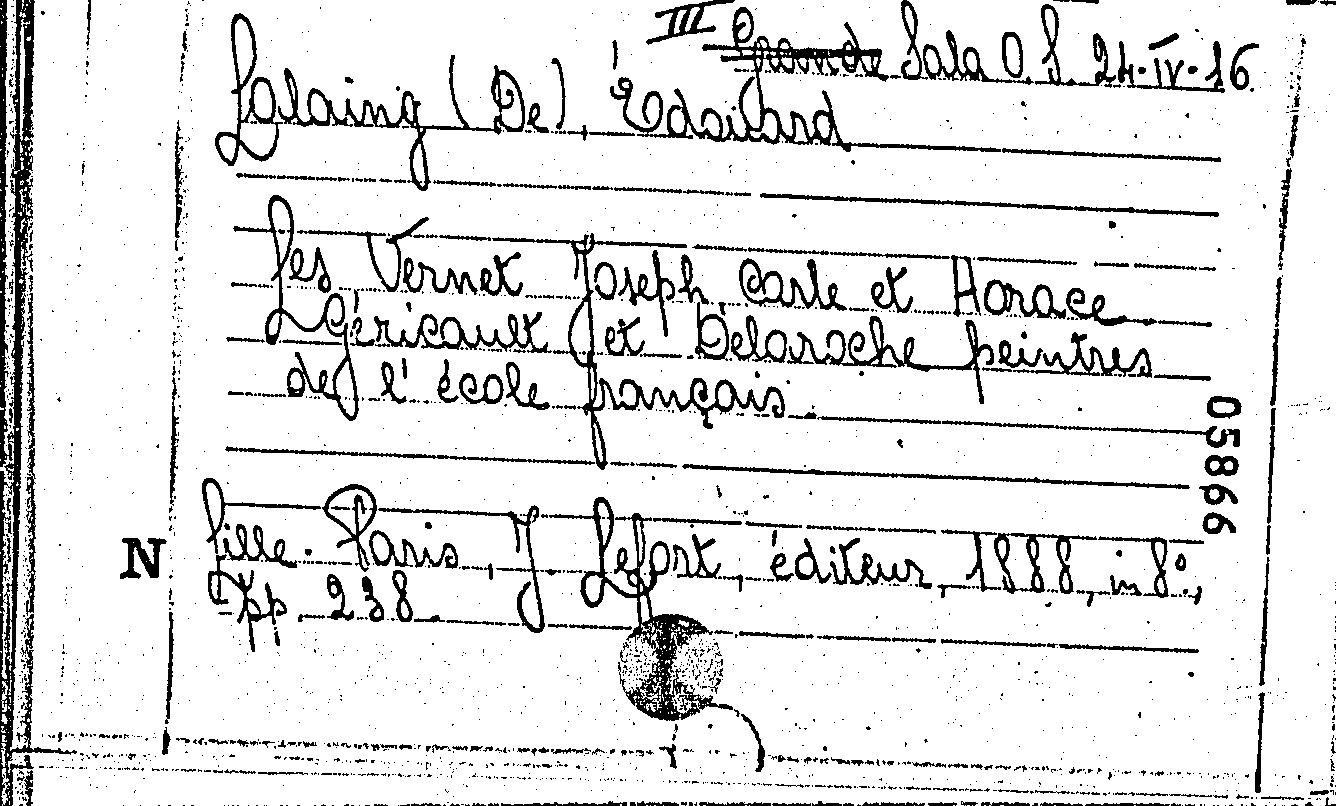 III Grande Sala O. S. 24-IV-16
Lalaing (De), Édouard
Les Vernet Joseph, Carle et Horace
Géricault et Delaroche peintres
de l'école français.
05866
N
Lille-Paris, J. Lefort, éditeur, 1888, in 8º.,
pp. 238.